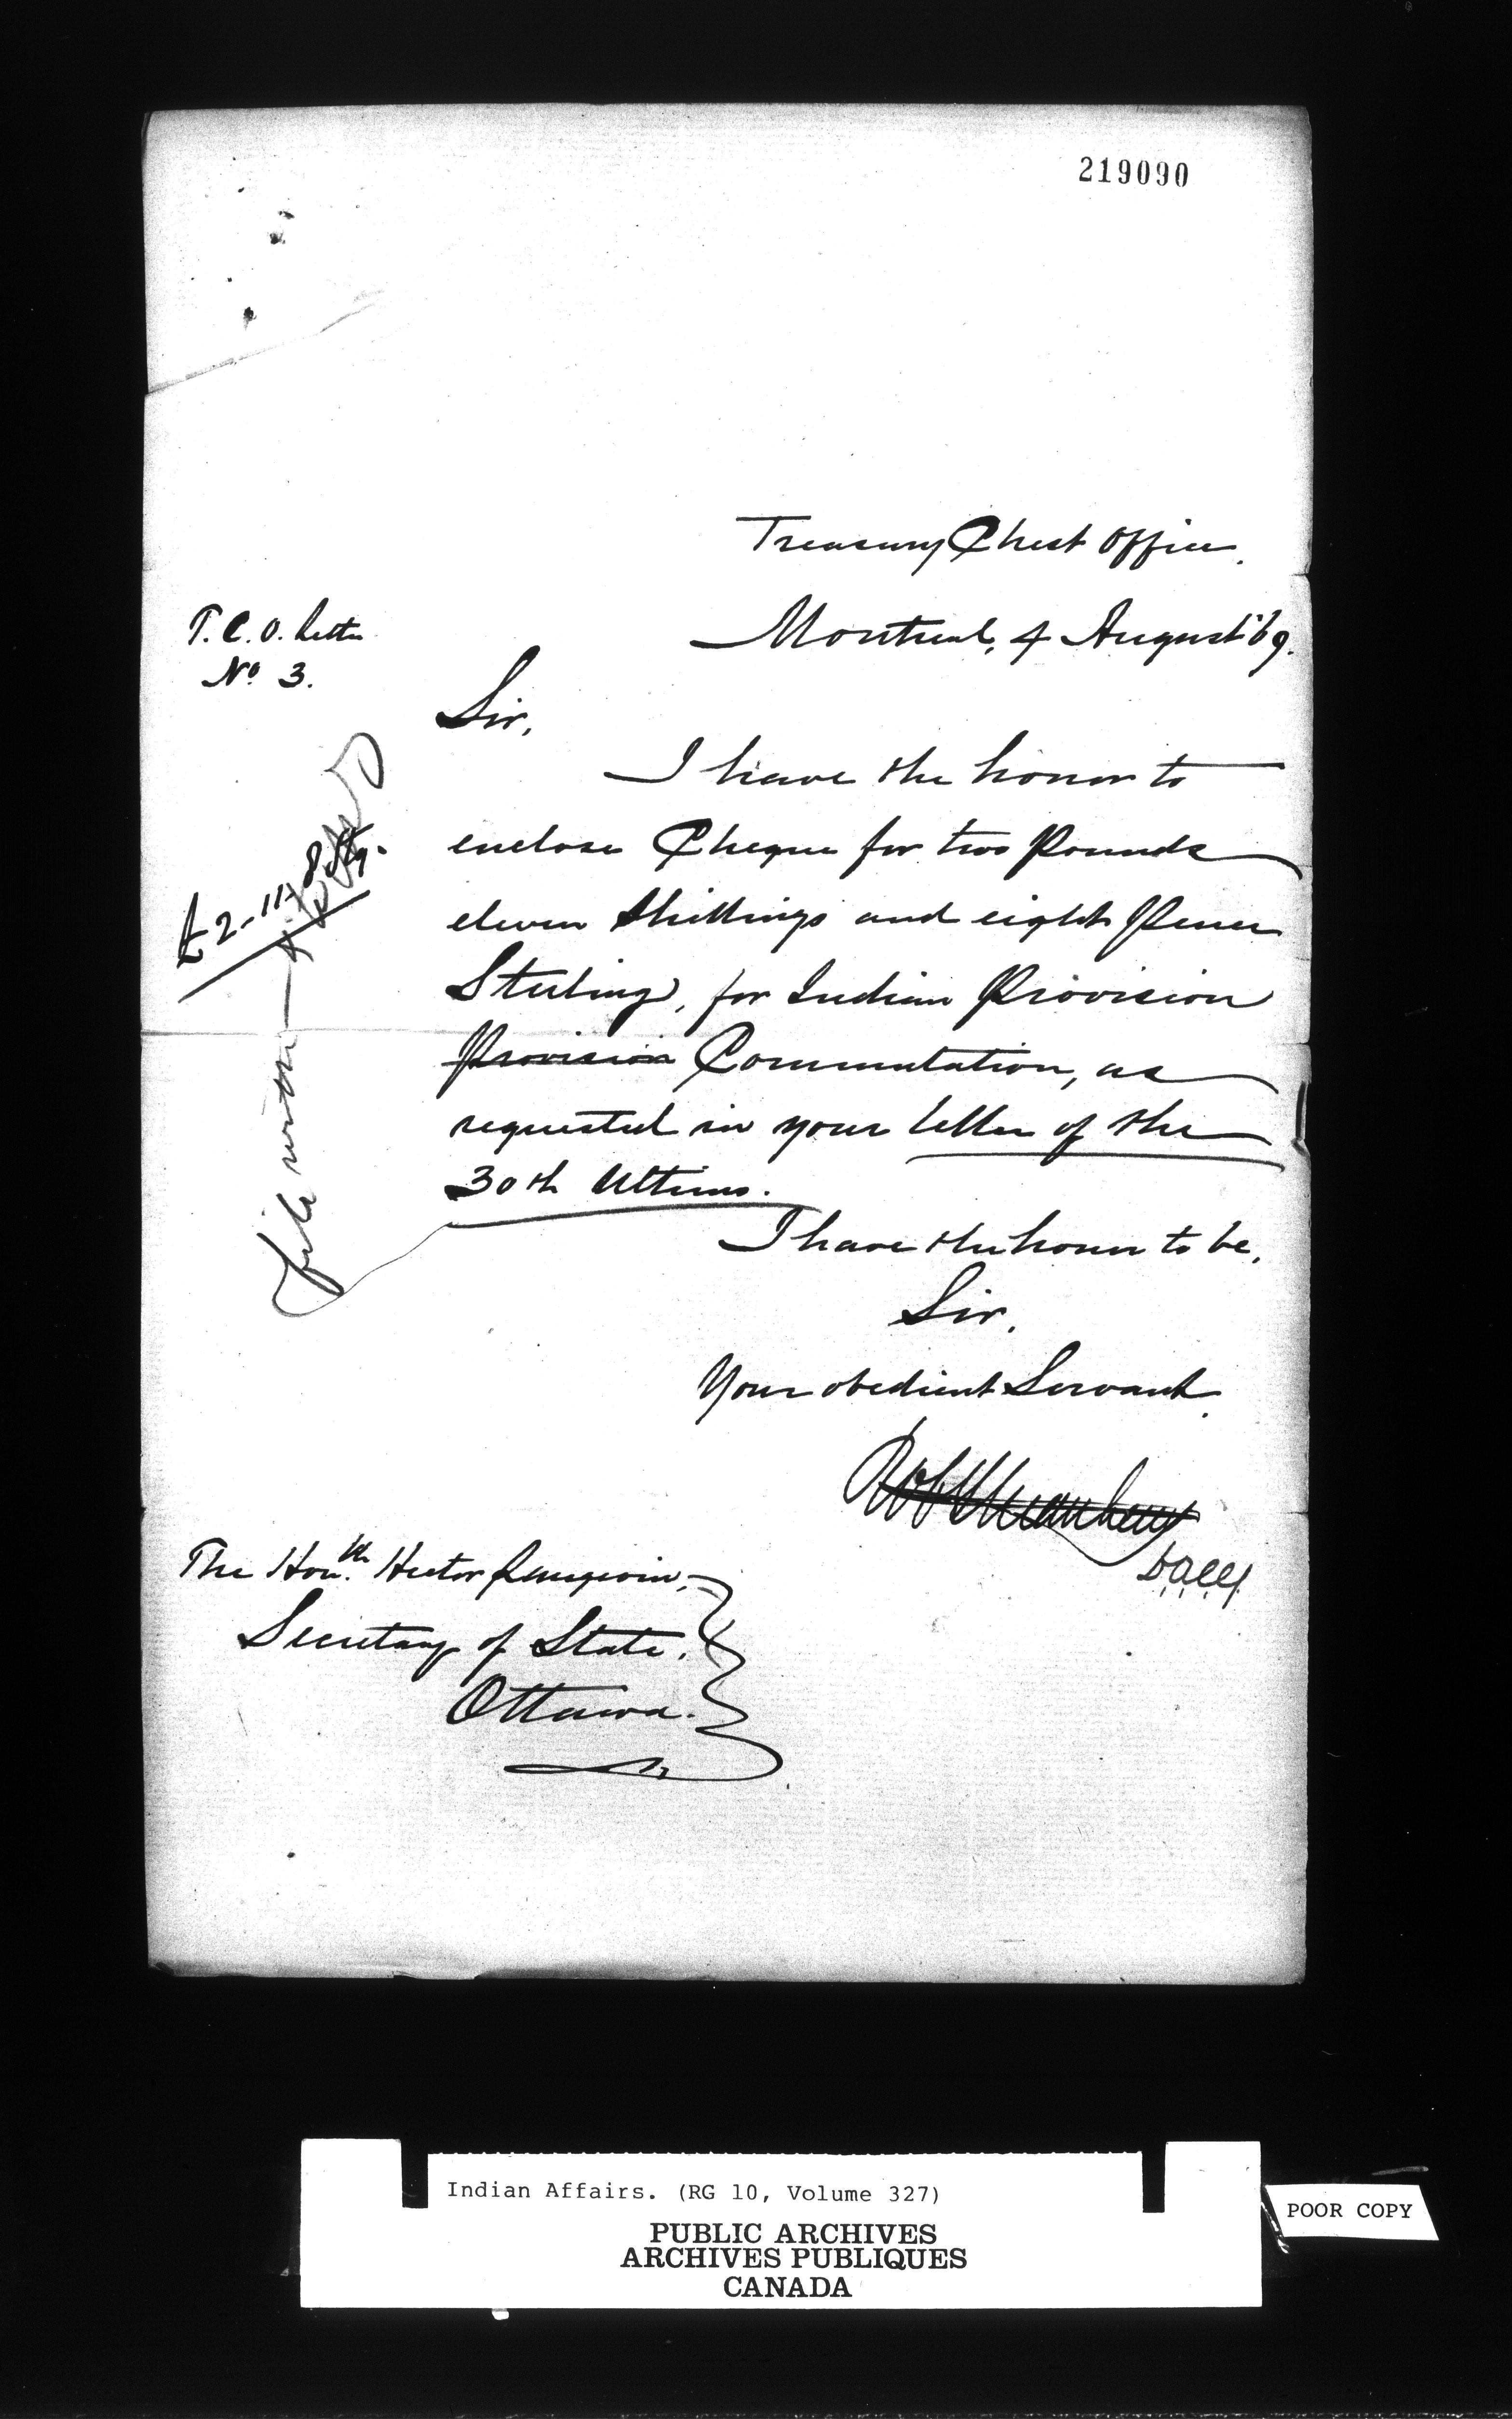 219090
Treasury Chest Office.
Montreal, 4 August '69.
T. C. O. Letter
No 3.
Sir,
I have the honor to
enclose Cheque for two Pounds
eleven Shillings and eight Pence
Sterling, for Indian Provision
Provision Commutation, as
requested in your letter of the
30th Ultimo.
£2-11-8 Stg.
file with
I have the honor to be,
Sir,
Your obedient Servant.
The Honble. Hector Langevin,
Secretary of State.
Ottawa.
Indian Affairs. (RG 10, Volume 327)
PUBLIC ARCHIVES
ARCHIVES PUBLIQUES
CANADA
POOR COPY